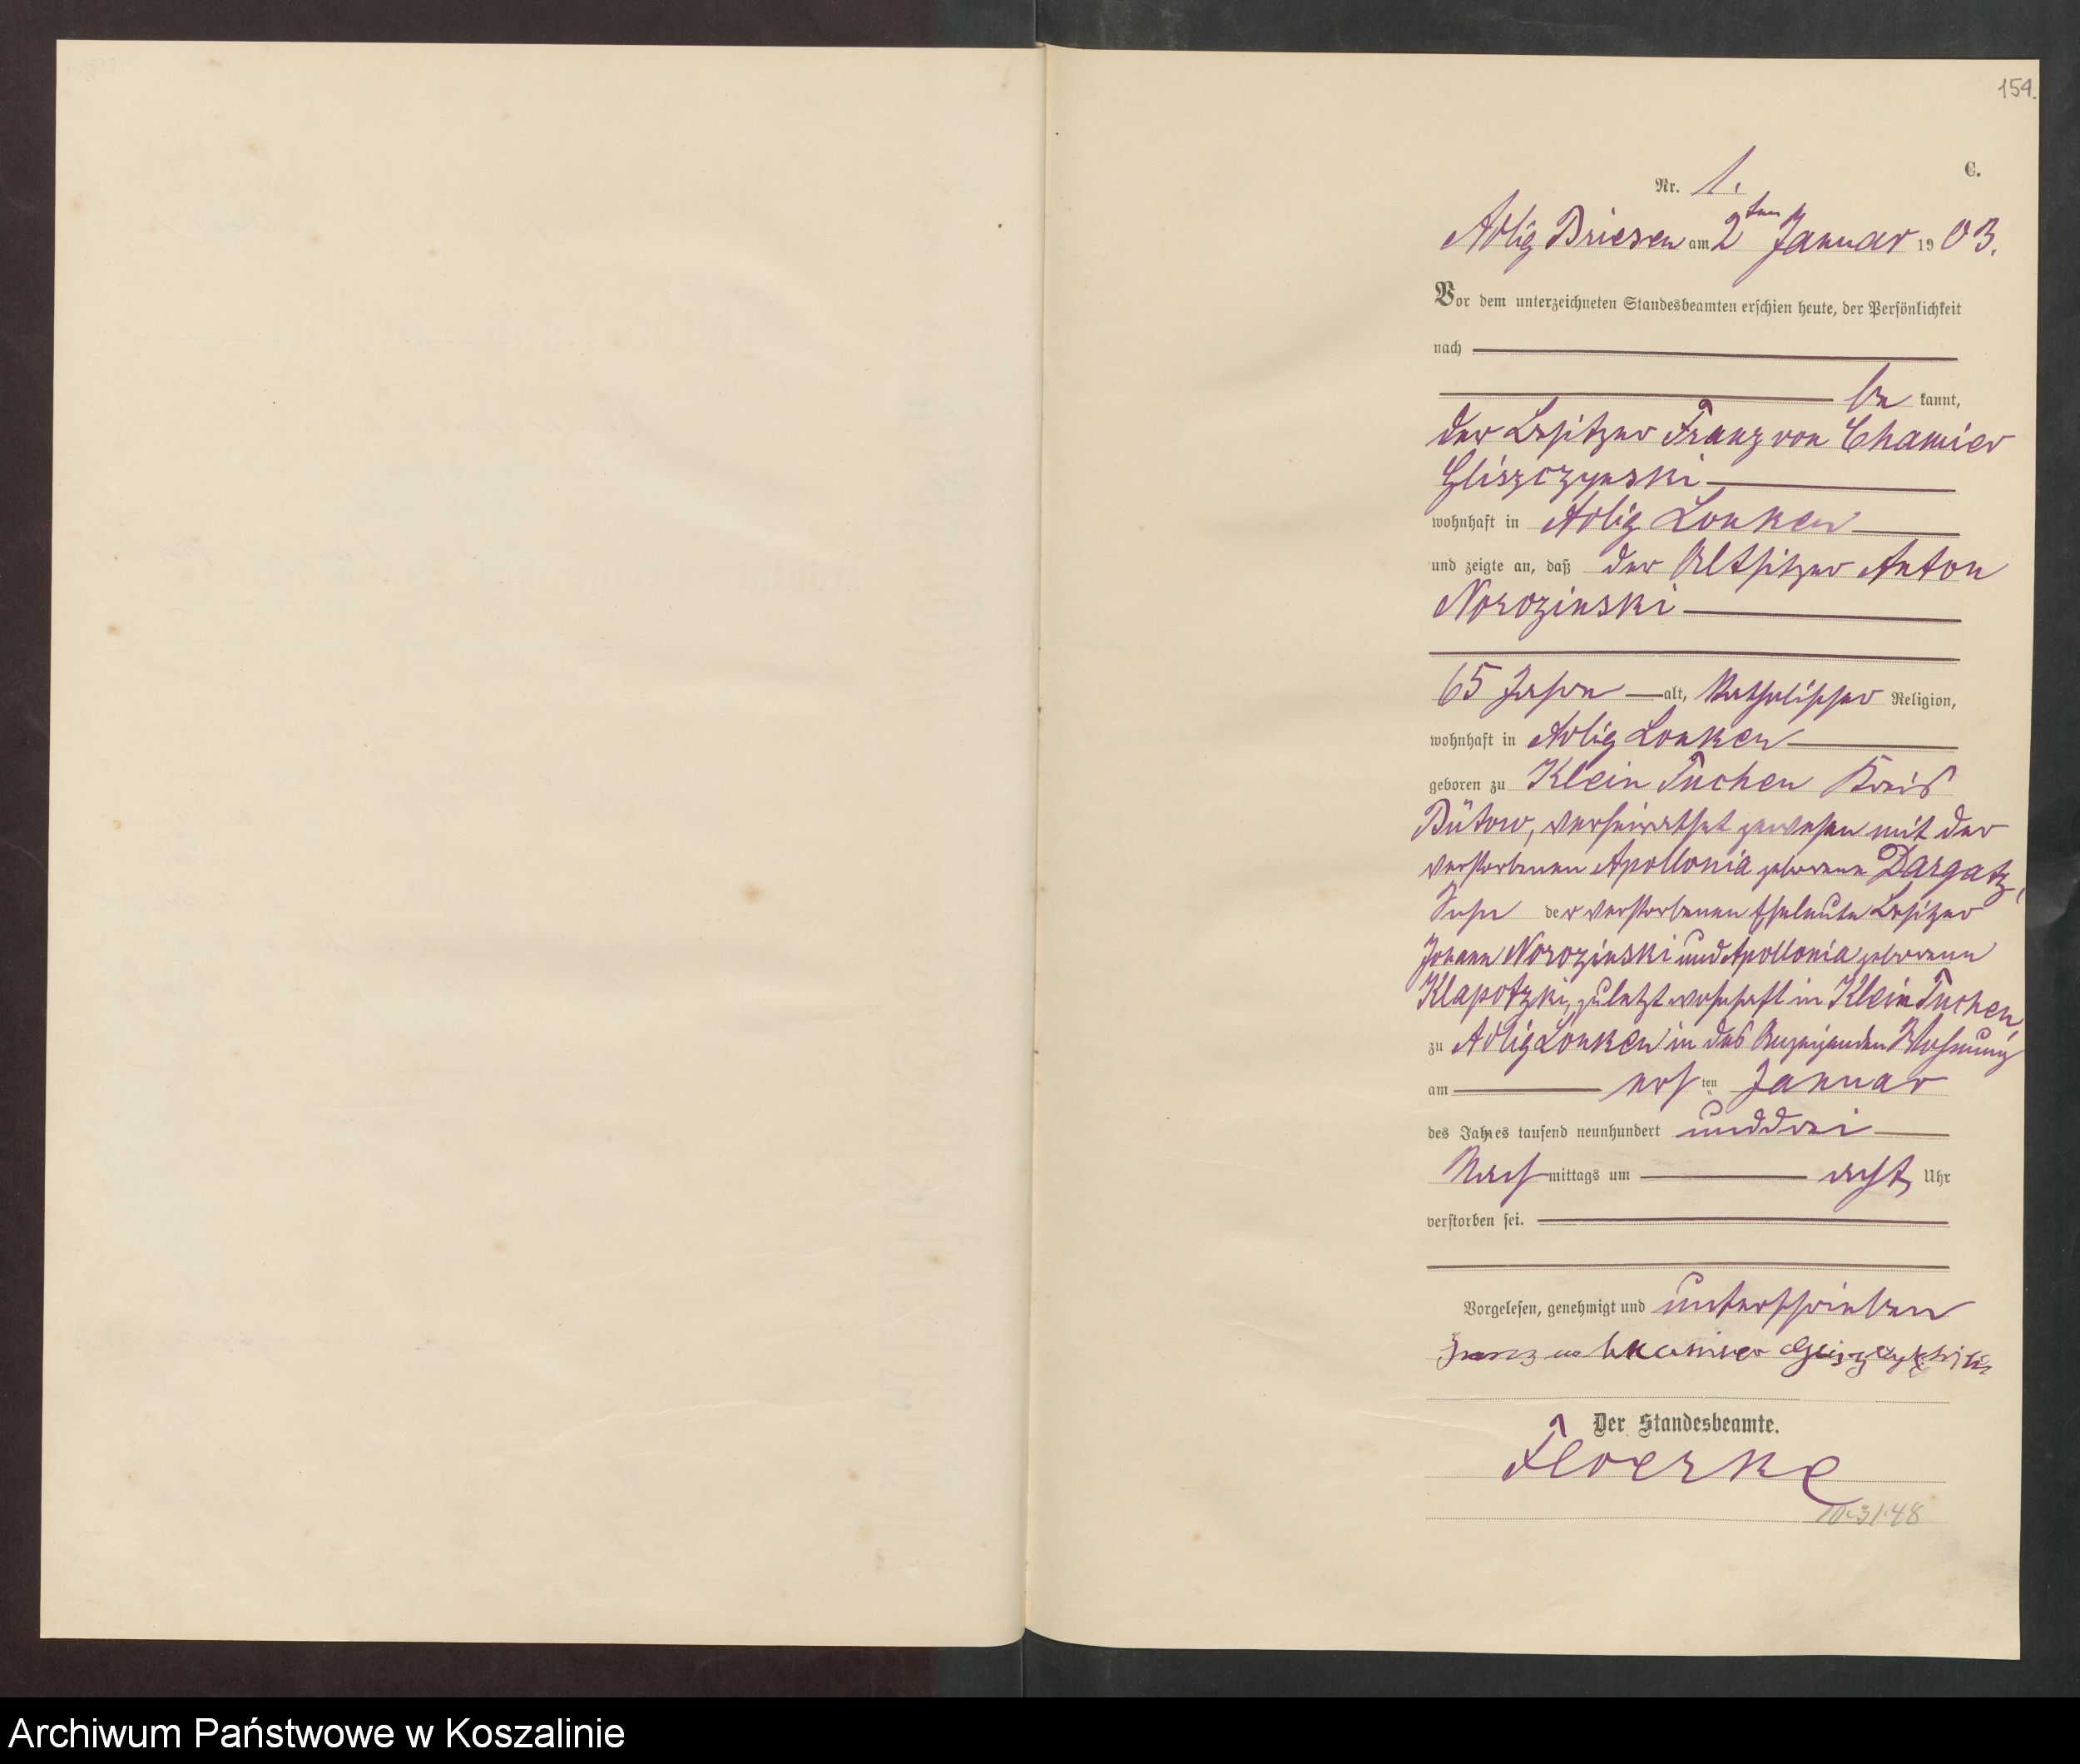 154.
C.
Nr. 1.
Adlig Briesen am 2ten Januar 1903.
Vor dem unterzeichneten Standesbeamten erschien heute, der Persönlichkeit
nach
be kannt,
der Besitzer Franz von Chamier
Gliszczynski
wohnhaft in Adlig Lonken
und zeigte an, daß der Altsitzer Anton
Norozinski
65 Jahre alt, katholischer Religion,
wohnhaft in Adlig Lonken
geboren zu Klein Tuchen Kreis
Bütow, verheirathet gewesen mit der
verstorbenen Apollonia geborene Dargatz,
Sohn der verstorbenen Eheleute Besitzer
Johann Norozinski und Apollonia geborene
Klapotzki, zuletzt wohnhaft in Klein Tuchen,
zu Adlig Lonken in des Anzeigenden Wohnung
am ersten Januar
des Jahres tausend neunhundert und drei
Nach mittags um acht Uhr
verstorben sei.
Vorgelesen, genehmigt und unterschrieben
Franz von Chamier
Der Standesbeamte.
Floerke
10.31.48
Archiwum Państwowe w Koszalinie